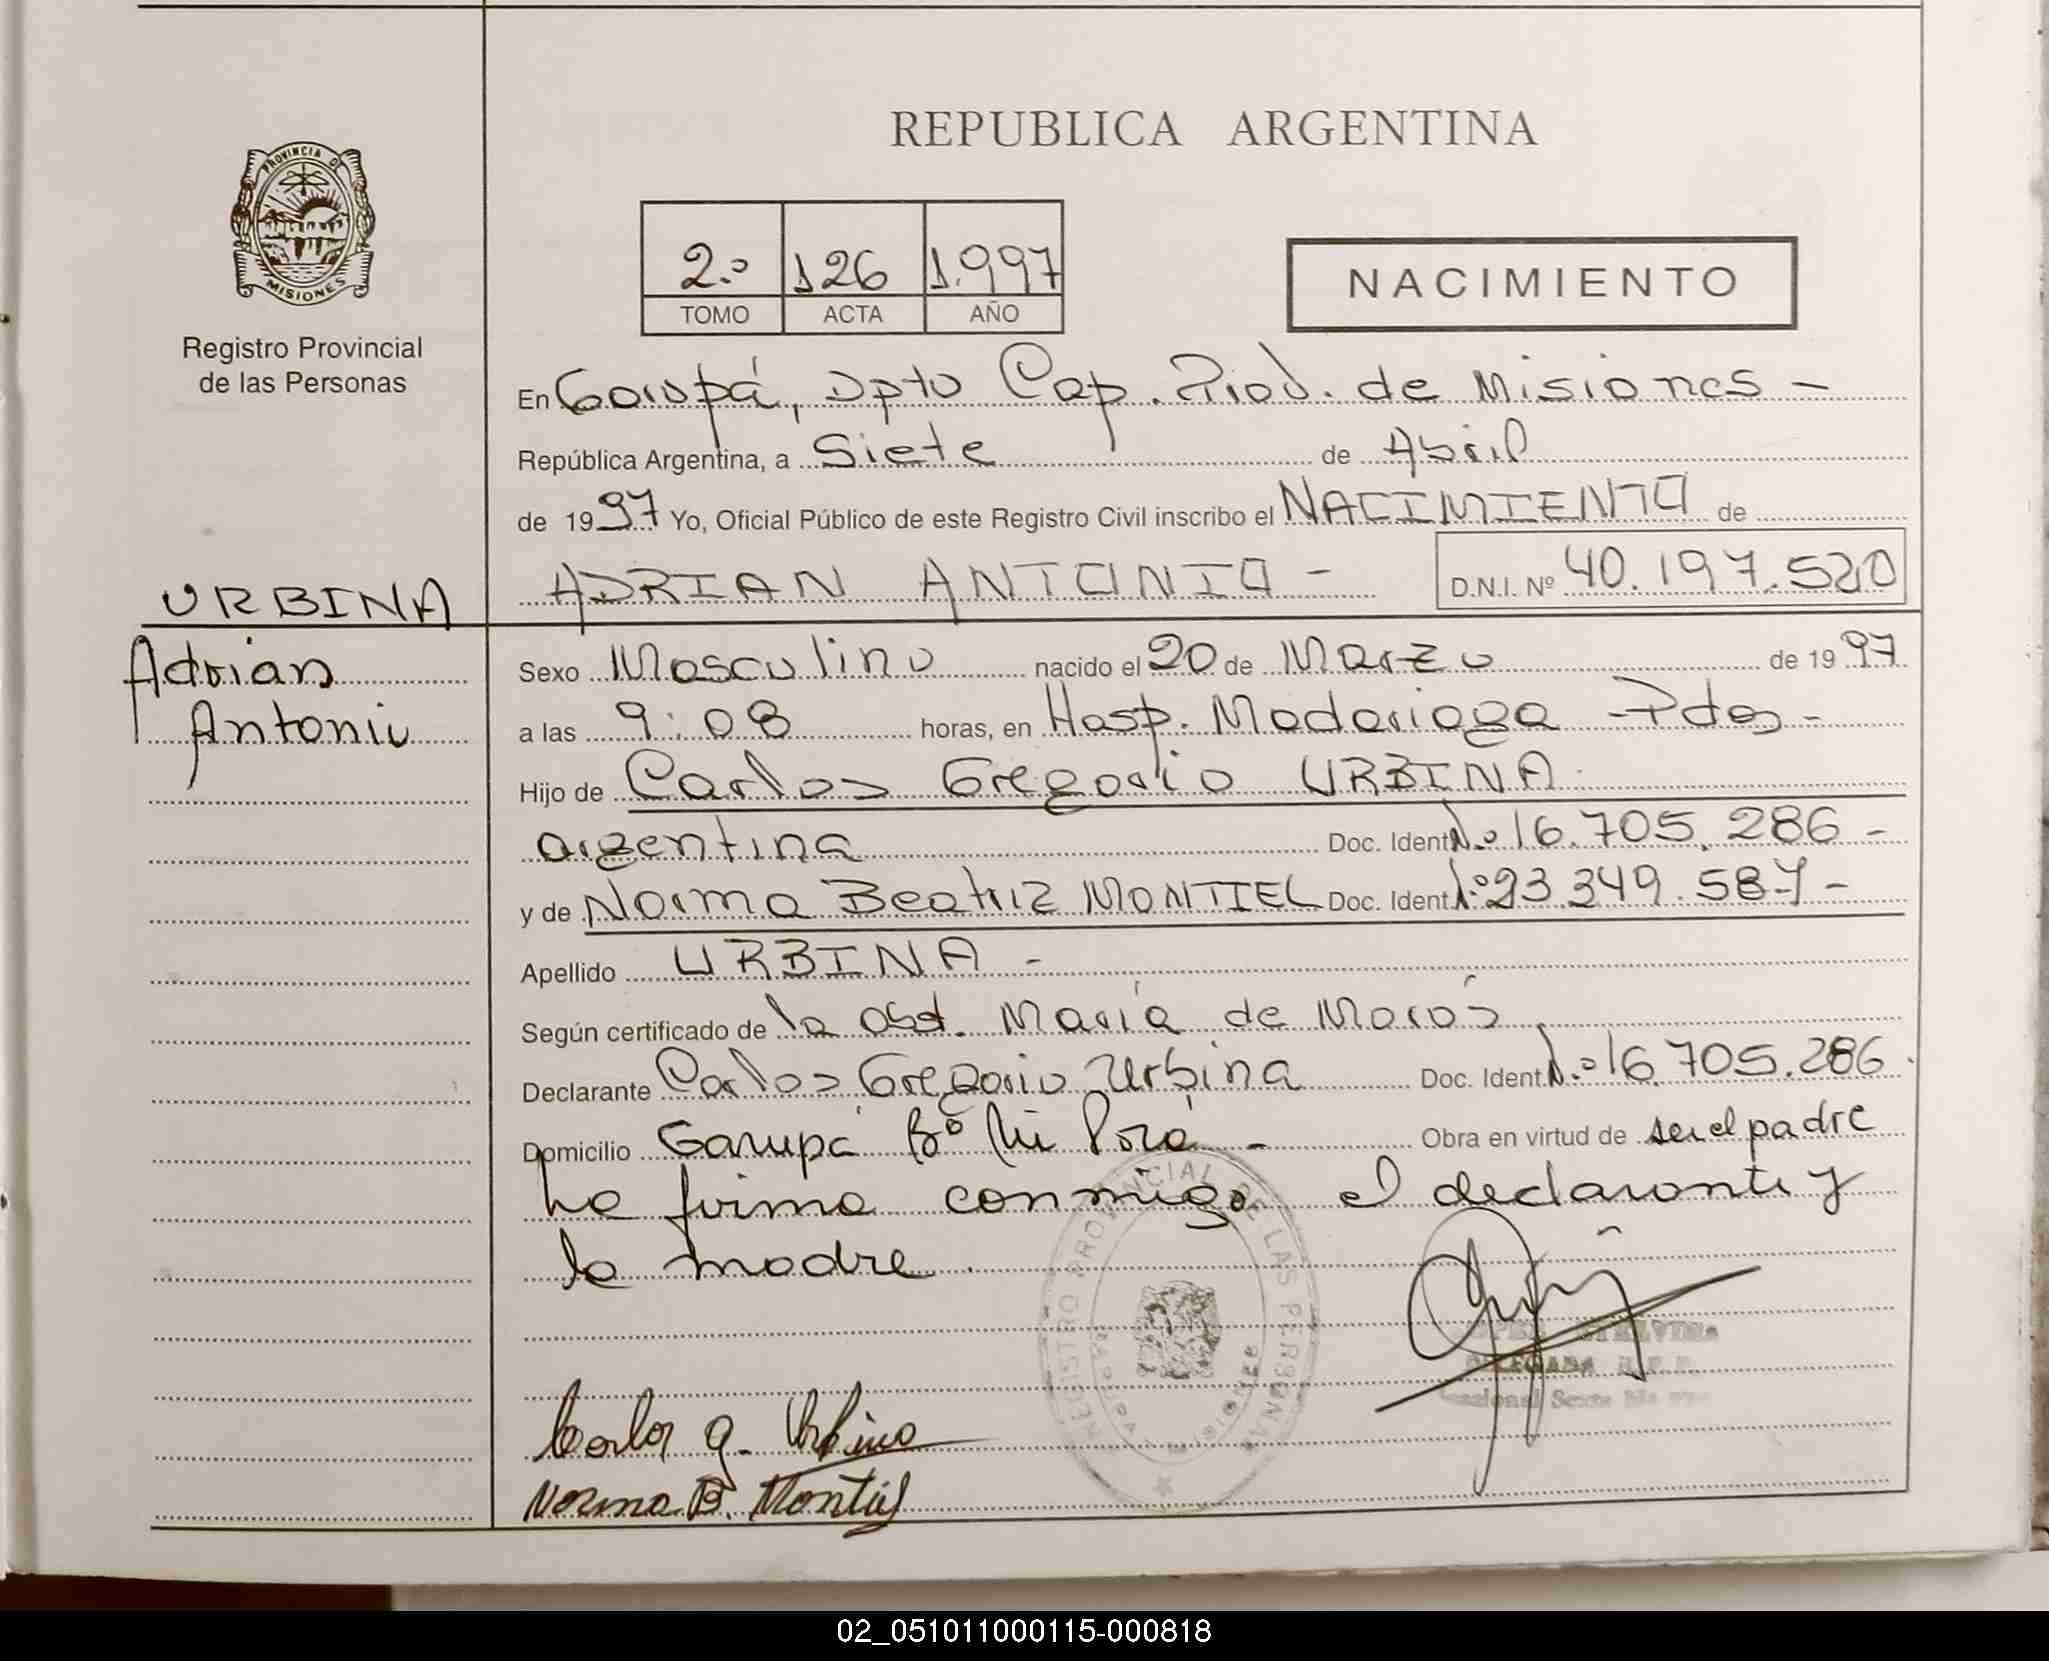 REPUBLICA ARGENTINA
PROVINCIA DE
MISIONES
Registro Provincial
de las Personas
2.º 126 1.997
TOMO ACTA AÑO
NACIMIENTO
En Garupá, Dpto Cap. Prov. de Misiones -
República Argentina, a Siete de Abril
de 1997 Yo, Oficial Público de este Registro Civil inscribo el NACIMIENTO de
ADRIAN ANTONIO - D.N.I. Nº 40.197.520
URBINA
Adrian
Antonio
Sexo Masculino nacido el 20 de Marzo de 1997
a las 9:08 horas, en Hosp. Madariaga - Pdas -
Hijo de Carlos Gregorio URBINA
argentina Doc. Ident Nº 16.705.286 -
y de Norma Beatriz MONTIEL Doc. Ident Nº 23.349.587 -
Apellido URBINA -
Según certificado de la Obst. María de Morás
Declarante Carlos Gregorio Urbina Doc. Ident. Nº 16.705.286.
Domicilio Garupá Bº Ñu Porá - Obra en virtud de ser el padre
La firma conmigo el declarante y
la madre.
REGISTRO PROVINCIAL DE LAS PERSONAS
GARUPA MISIONES
DELEGADA R.P.P.
Carlos G. Urbina
Norma B. Montiel
02_051011000115-000818